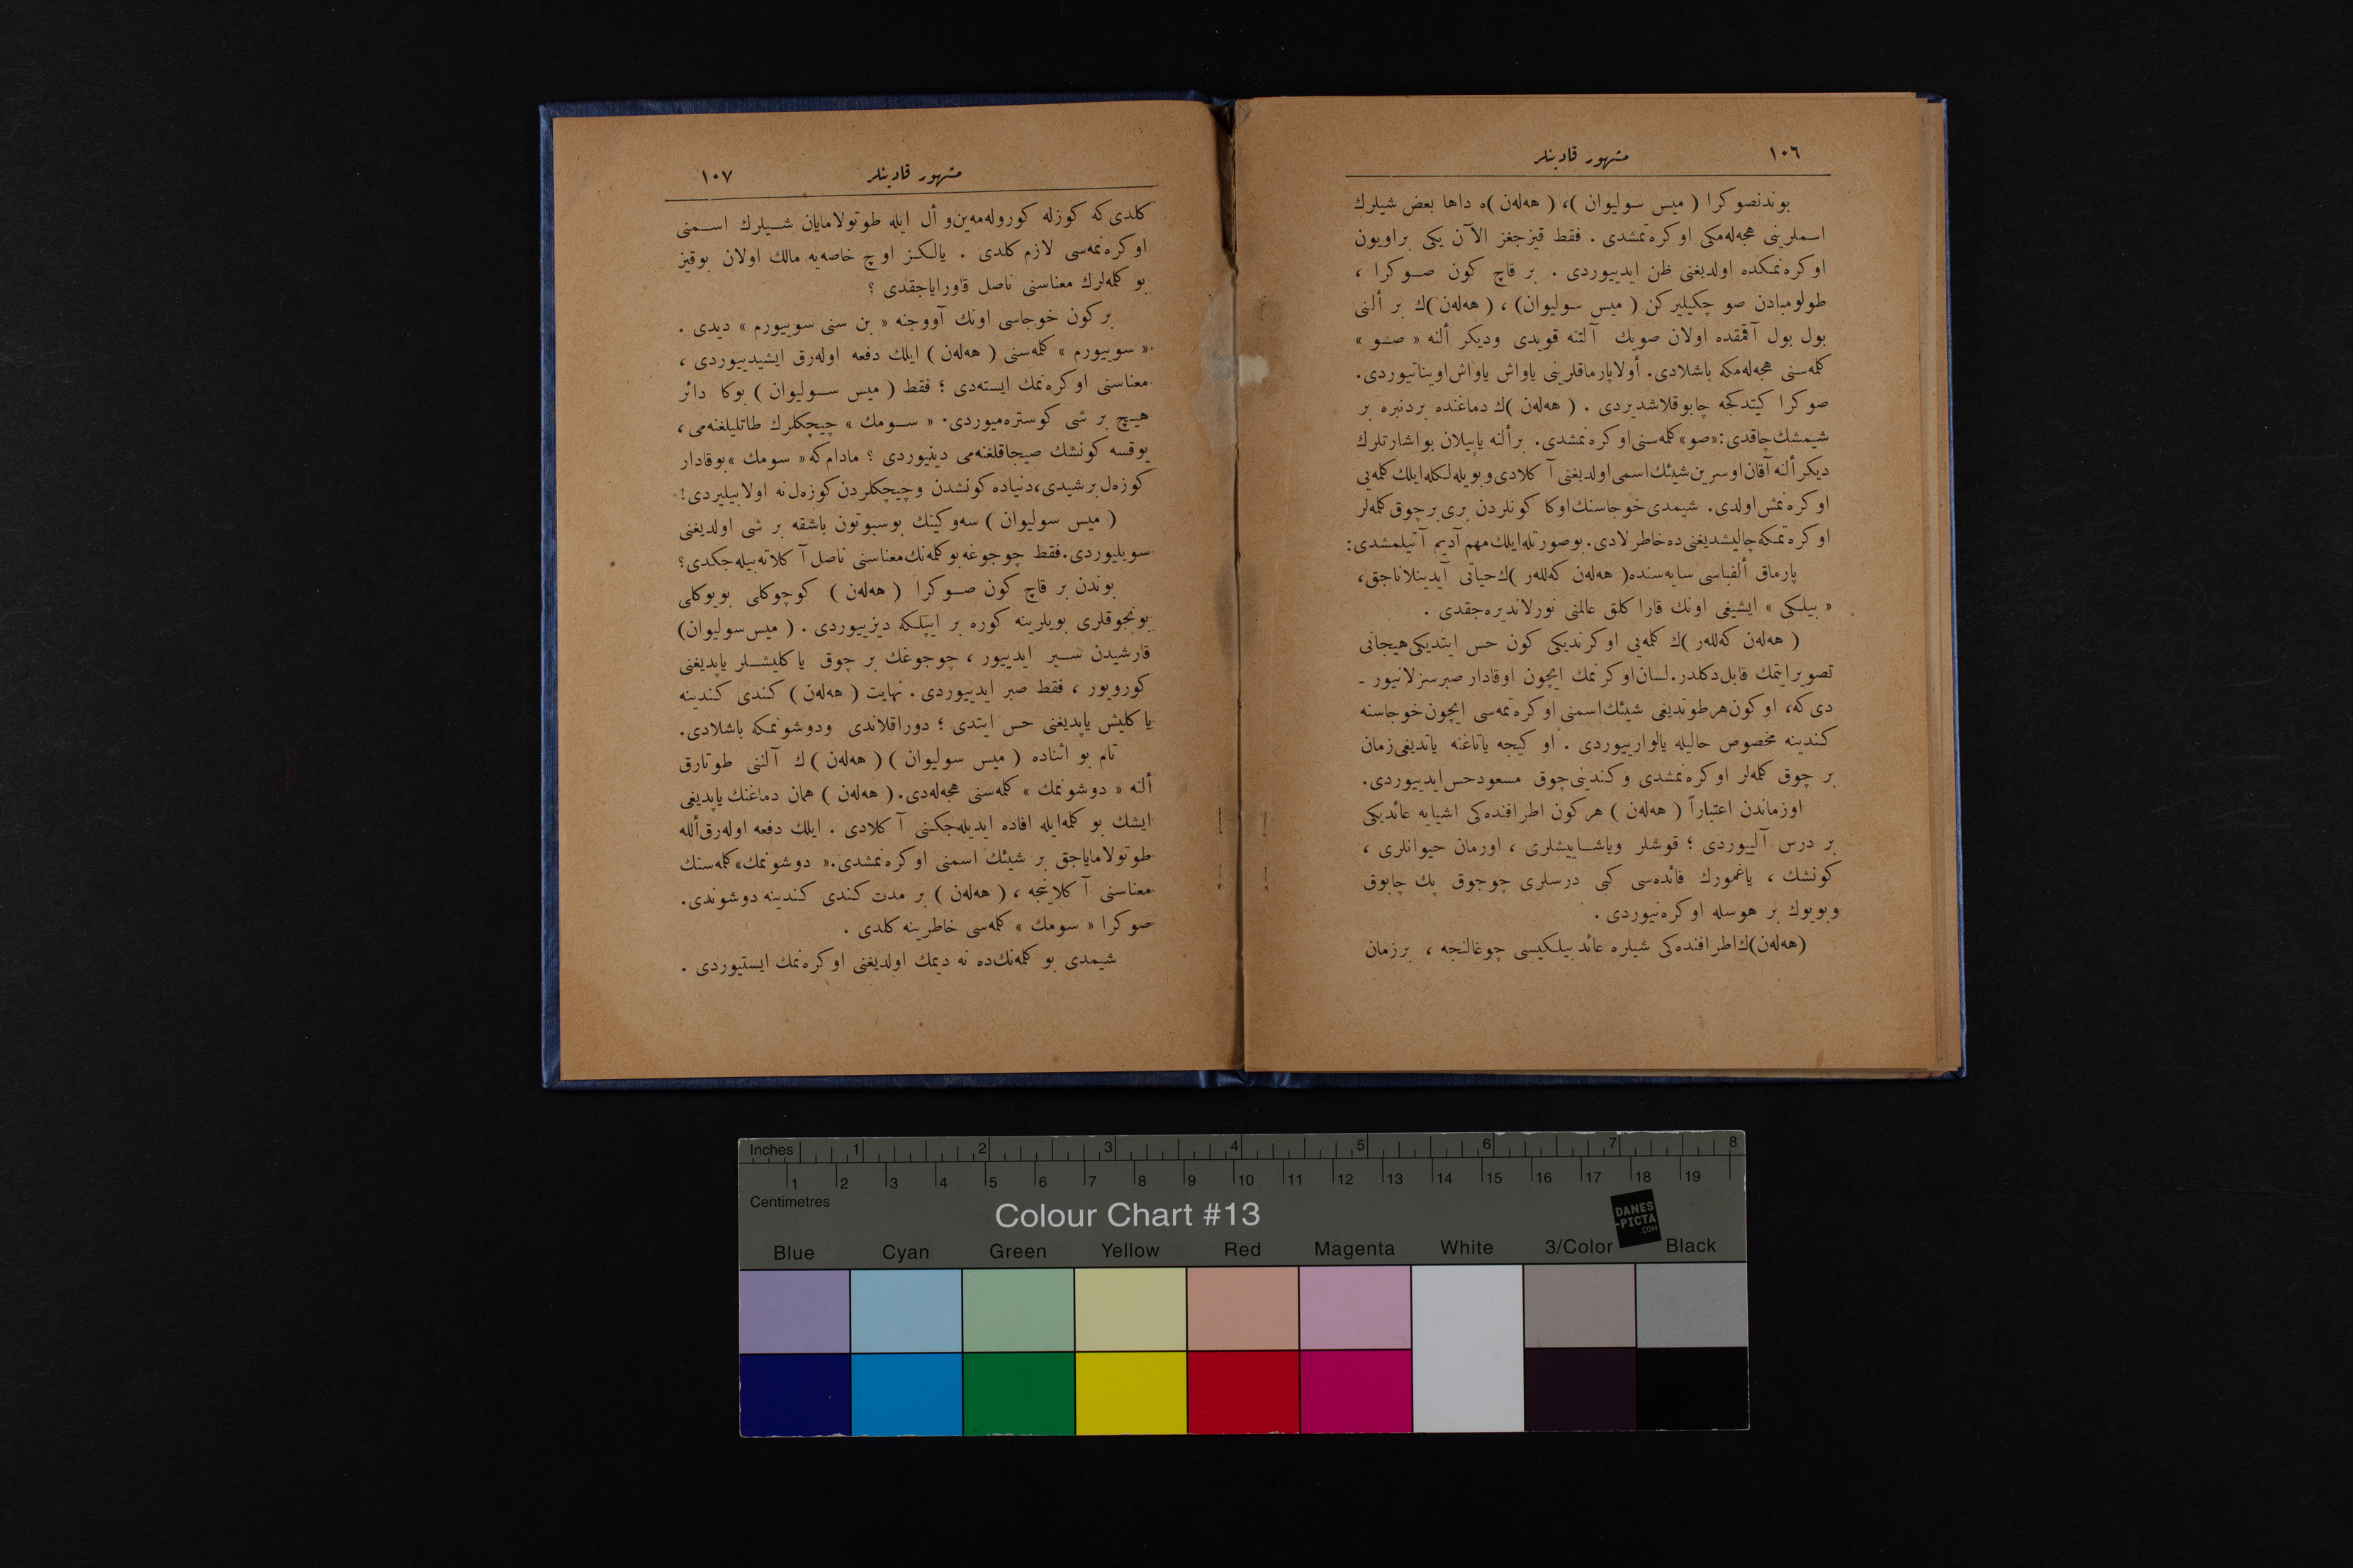 ١٠٦
مشهور قادينلر
بوندنصوكرا ( ميس سوليوان )، ( هه‌له‌ن )ه داها بعض شيلرك
اسملرينى هجه‌له‌مكى اوكره‌تمشدى . فقط قيزجغز الآن يكى براويون
اوكره‌نمكده اولديغنى ظن ايدييوردى . بر قاچ كون صوكرا ،
طولومبادن صو چكيليركن ( ميس سوليوان) ، ( هه‌له‌ن )ك بر ألنى
بول بول آقمقده اولان صويك آلتنه قويدى وديكر ألنه « صو »
كله‌سنى هجه‌له‌مكه باشلادى. أولا پارماقلرينى ياواش ياواش اويناتيوردى.
صوكرا كيتدكجه چابوقلاشديردى . ( هه‌له‌ن )ك دماغنده بردنبره بر
شيمشك چاقدى: «صو» كله‌سنى اوكره‌نمشدى. برألنه ياپيلان بواشارتلرك
ديكر ألنه آقان اوسرين شيئك اسمى اولديغنى آكلادى و بويله‌لكله ايلك كله‌يى
اوكره‌نمش اولدى. شيمدى خوجاسنك اوكا كونلردن برى برچوق كله‌لر
اوكره‌تمكه چاليشديغنى ده خاطرلادى. بوصورتله ايلك مهم آديم آتيلمشدى:
پارماق ألفباسى سايه‌سنده ( هه‌له‌ن كه‌لله‌ر )ك حياتى آيدينلاناجق،
« بيلكى » ايشيغى اونك قاراكلق عالمنى نورلانديره‌جقدى .
( هه‌له‌ن كه‌لله‌ر )ك كله‌يى اوكرنديكى كون حس ايتديكى هيجانى
تصوير ايتمك قابل دكلدر. لسان اوكرنمك ايچون اوقادار صبرسزلانيور -
دى كه، او كون هر طوتديغى شيئك اسمنى اوكره‌تمه‌سى ايچون خوجاسنه
كندينه مخصوص حاليله يالوارييوردى . او كيجه ياتاغنه ياتديغى زمان
بر چوق كله‌لر اوكره‌نمشدى وكندينى چوق مسعود حس ايدييوردى.
اوزماندن اعتباراً ( هه‌له‌ن ) هركون اطرافنده‌كى اشيايه عائديكى
بر درس آلييوردى ؛ قوشلر وياشاييشلرى ، اورمان حيوانلرى ،
كونشك ، ياغمورك فائده‌سى كبى درسلرى چوجوق پك چابوق
وبويوك بر هوسله اوكره‌نيوردى .
(هه‌له‌ن)ك اطرافنده‌كى شيلره عائد بيلكيسى چوغالنجه ، برزمان
مشهور قادينلر
١٠٧
كلدى كه كوزله كوروله‌مه‌ين و أل ايله طوتولامايان شيلرك اسمنى
اوكره‌نمه‌سى لازم كلدى . يالكز اوچ خاصه‌يه مالك اولان بوقيز
بو كله‌لرك معناسنى ناصل قاوراياجقدى ؟
بركون خوجاسى اونك آووجنه « بن سنى سوييورم » ديدى .
« سوييورم » كله‌سنى ( هه‌له‌ن ) ايلك دفعه اوله‌رق ايشيدييوردى ،
معناسنى اوكره‌نمك ايسته‌دى ؛ فقط ( ميس سوليوان ) بوكا دائر
هيچ بر شى كوستره‌ميوردى. « سومك » چيچكلرك طاتليلغنه‌مى ،
يوقسه كونشك صيجاقلغنه‌مى دينيوردى ؟ مادام كه « سومك » بوقادار
كوزه‌ل برشيدى، دنياده كونشدن وچيچكلردن كوزه‌ل نه اولابيليردى!
( ميس سوليوان ) سه‌وكينك بوسبوتون باشقه بر شى اولديغنى
سويليوردى. فقط چوجوغه بوكله‌نك معناسنى ناصل آكلاته‌بيله‌جكدى؟
بوندن بر قاچ كون صوكرا ( هه‌له‌ن ) كوچوكلى بويوكلى
بونجوقلرى بويلرينه كوره بر ايپلكه ديزييوردى . ( ميس سوليوان)
قارشيدن سير ايدييور ، چوجوغك بر چوق ياكليشلر ياپديغنى
كورويور ، فقط صبر ايدييوردى . نهايت ( هه‌له‌ن ) كندى كندينه
ياكليش ياپديغنى حس ايتدى ؛ دوراقلاندى ودوشونمكه باشلادى.
تام بو اثناده ( ميس سوليوان ) ( هه‌له‌ن )ك آلننى طوتارق
ألنه « دوشونمك » كله‌سنى هجه‌له‌دى. ( هه‌له‌ن ) همان دماغنك ياپديغى
ايشك بو كله ايله افاده ايديله‌جكنى آكلادى . ايلك دفعه اوله‌رق ألله
طوتولاماياجق بر شيئك اسمنى اوكره‌نمشدى. « دوشونمك » كله‌سنك
معناسنى آكلاينجه ، ( هه‌له‌ن ) بر مدت كندى كندينه دوشوندى.
صوكرا « سومك » كله‌سى خاطرينه كلدى .
شيمدى بو كله‌نك ده نه ديمك اولديغنى اوكره‌نمك ايستيوردى .
Inches 1 2 3 4 5 6 7 8
1 2 3 4 5 6 7 8 9 10 11 12 13 14 15 16 17 18 19
Centimetres
Colour Chart #13
DANES
-PICTA
.COM
Blue Cyan Green Yellow Red Magenta White 3/Color Black